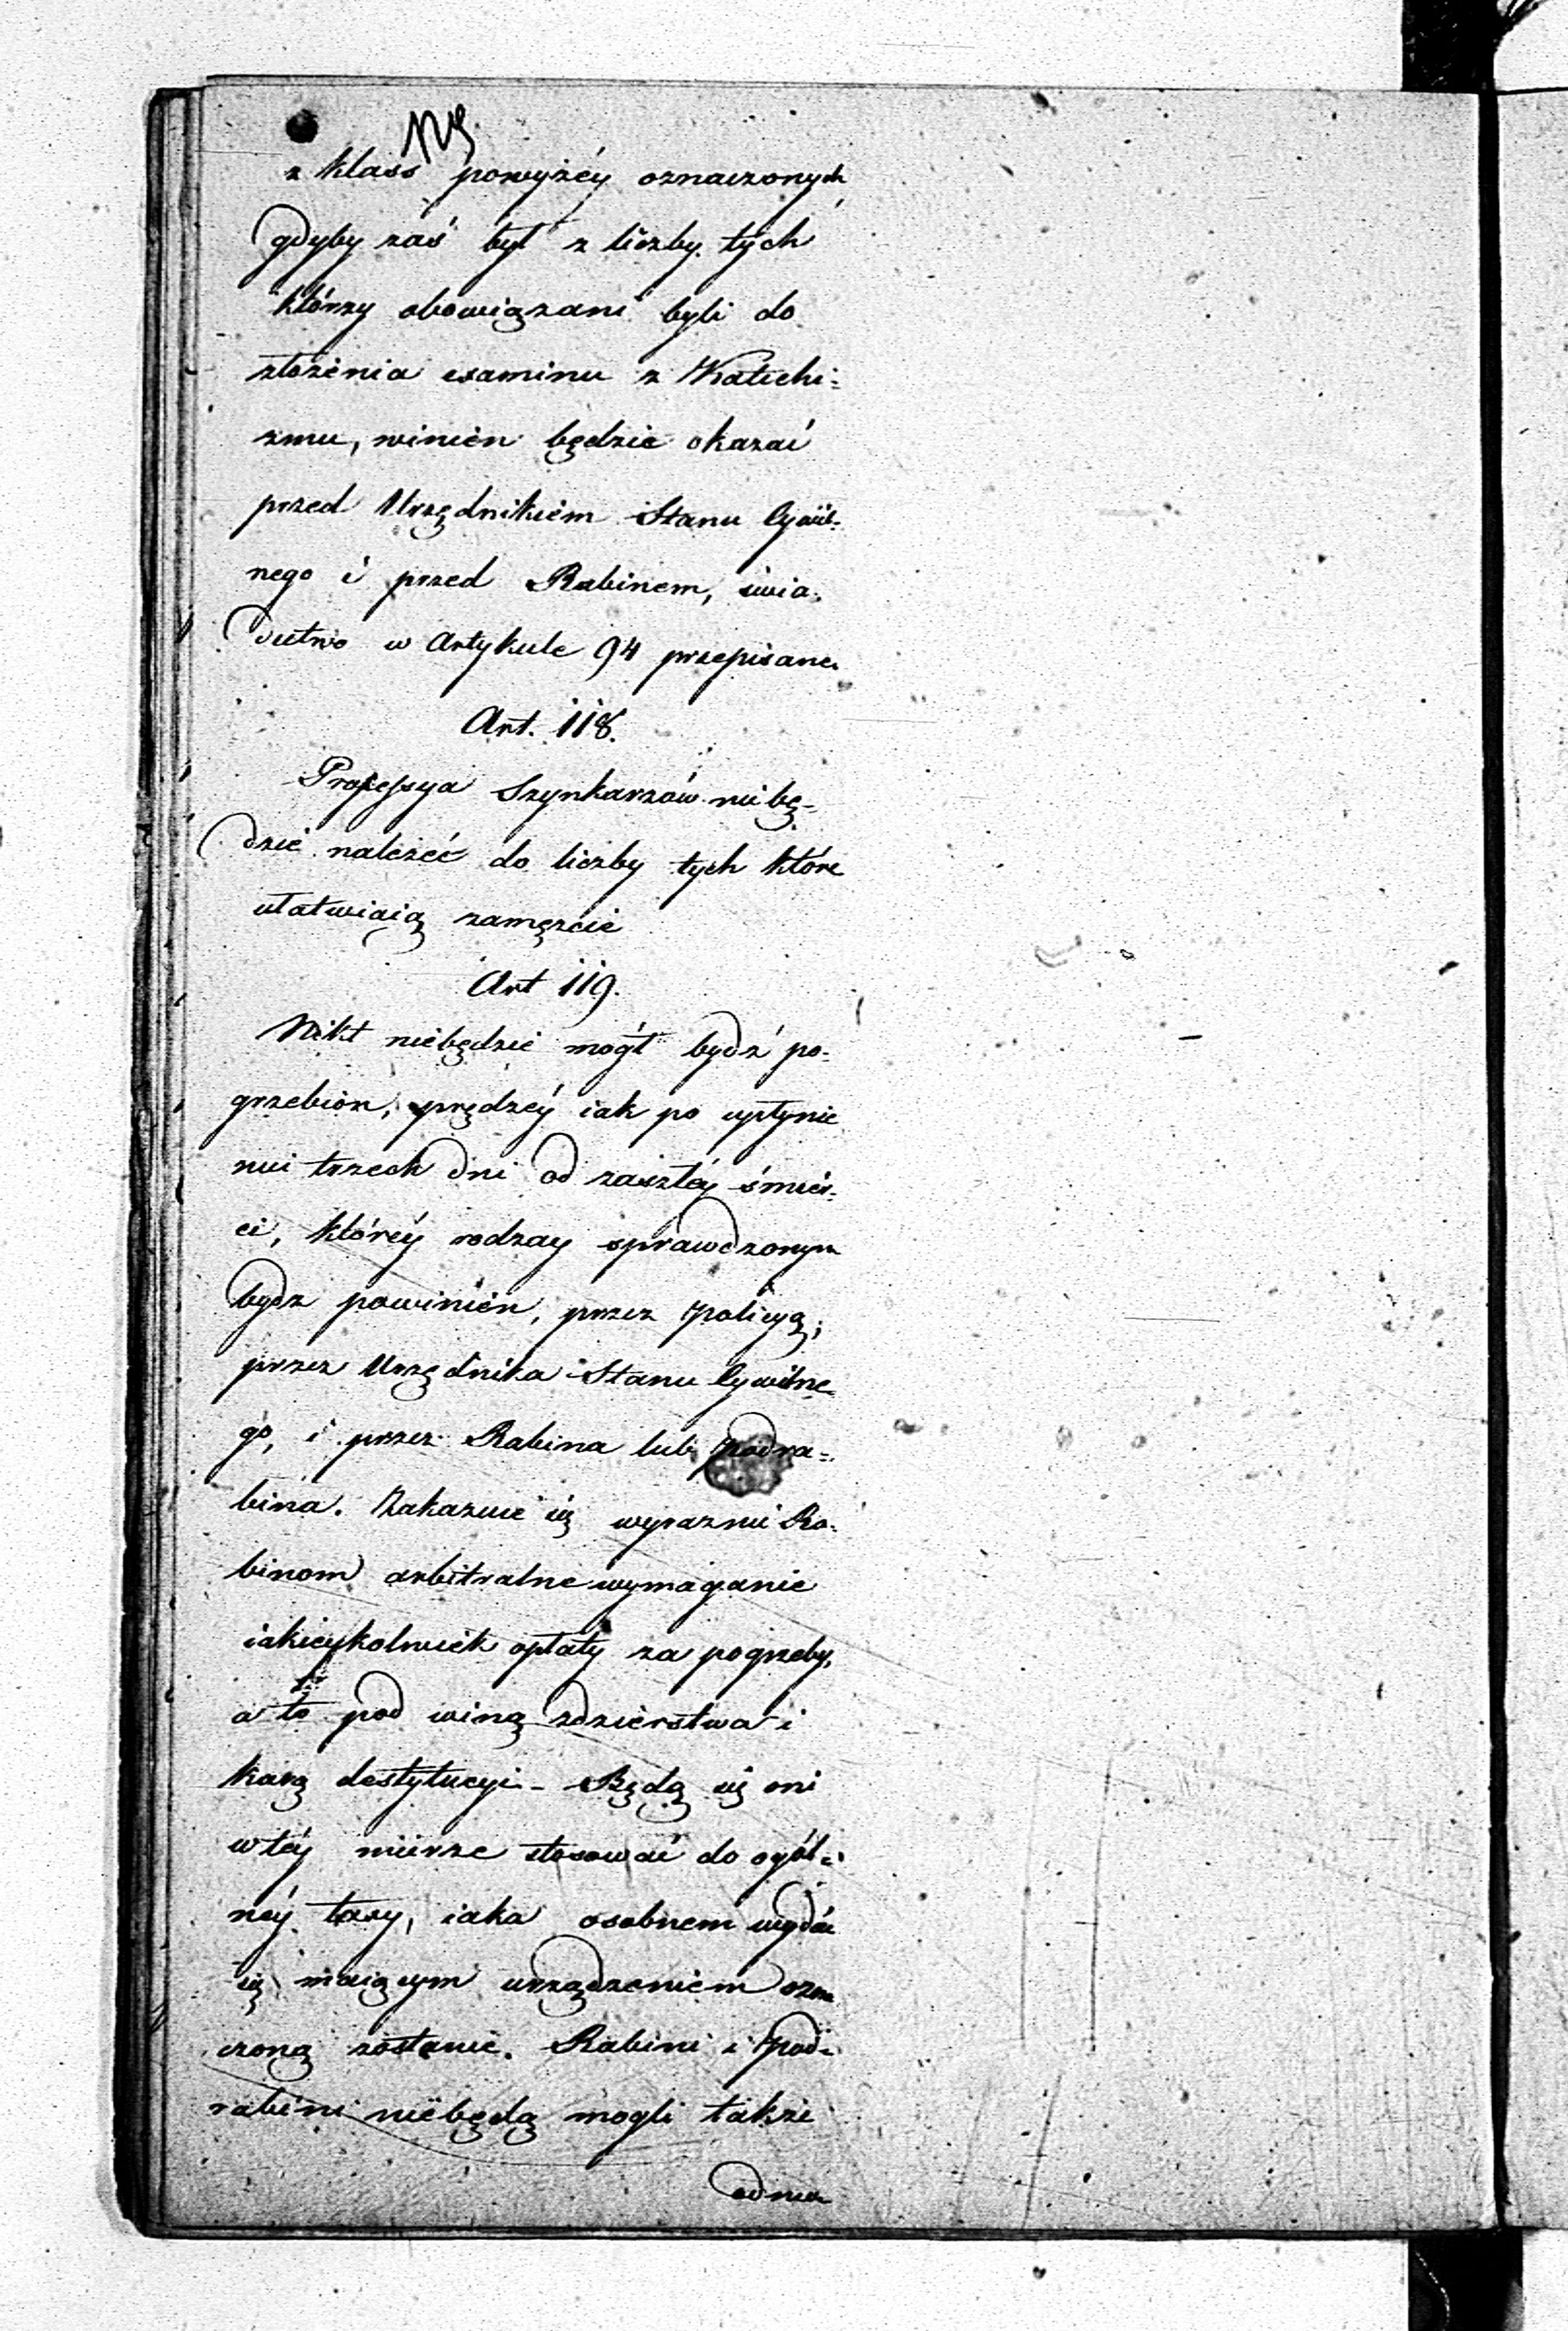 z klass powyżéy oznaczonych
gdyby zaś był z liczby tych
którzy obowiązani byli do
złożenia examinu z Katechi=
zmu, winien będzie okazać
przed Urzędnikiem Stanu Cywil=
nego i przed Rabinem, świa=
dectwo w Artykule 94 przepisane.
Art. 118.
Professya Szynkarzów nie bę=
dzie należeć do liczby tych które
ułatwiaią zamęzcie
Art 119.
Nikt niebędzie mógł bydź po=
grzebion, prędzéy iak po upłynie
niu trzech dni od zaszłéy śmier=
ci, któréy rodzay sprawdzonym
bydz powinien, przez Policyą,
przez Urzędnika Stanu Cywilne=
go, i przez Rabina lub Podra=
bina. Zakazuie się wyraznie Ra=
binom arbitralne wymaganie
iakieykolwiek opłaty za pogrzeby,
a to pod winą zdzierstwa i
karą destytucyi - Będą się oni
w téy mierze stosować do ogól=
néy taxy, iaka osobnem wydać
się maiącym urządzeniem ozna
czoną zostanie. Rabini i Pod=
rabini niebędą mogli także
odma